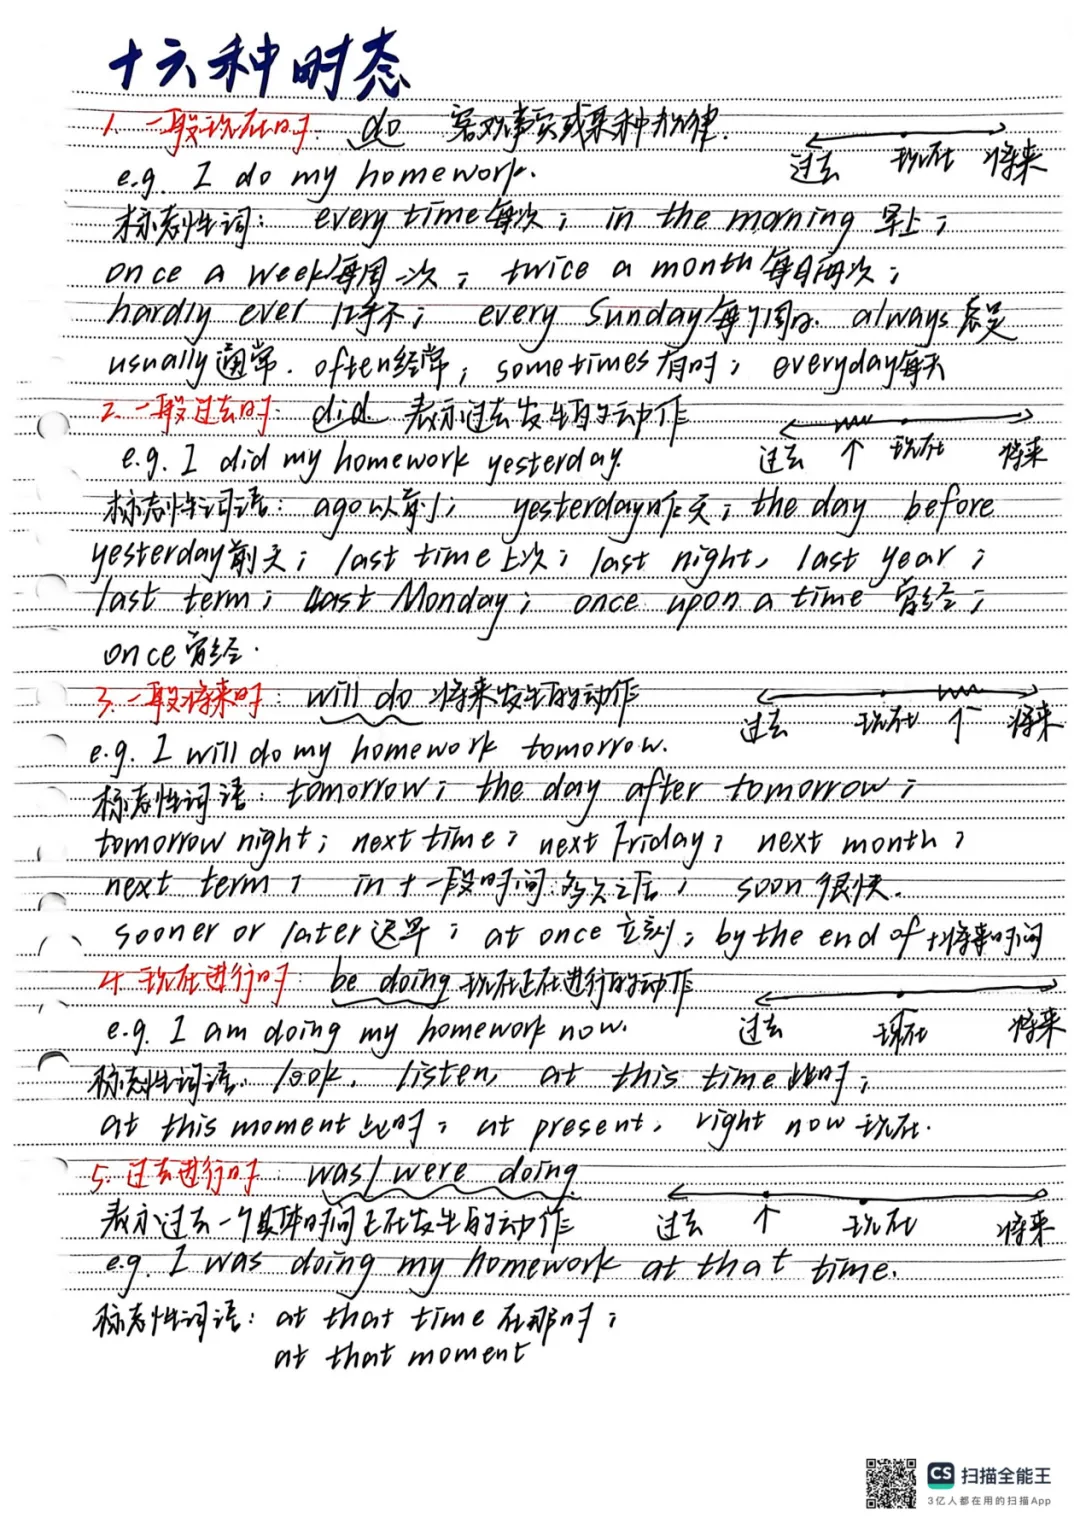 十六种时态
1. 一般现在时: do 客观事实或某种规律.
过去 现在 将来
e.g. I do my homework.
标志性词: every time每次; in the morning 早上;
once a week每周一次; twice a month每月两次;
hardly ever 几乎不; every Sunday每个周日. always总是
usually通常. often经常; sometimes有时; everyday每天
2. 一般过去时: did 表示过去发生的动作
过去 ↑ 现在 将来
e.g. I did my homework yesterday.
标志性词语: ago以前; yesterday昨天; the day before
yesterday前天; last time上次; last night, last year;
last term; last Monday; once upon a time 曾经;
once曾经.
3. 一般将来时: will do 将来发生的动作
过去 现在 ↑ 将来
e.g. I will do my homework tomorrow.
标志性词语: tomorrow; the day after tomorrow;
tomorrow night; next time; next Friday; next month;
next term; in+一段时间:多久之后; soon 很快.
sooner or later迟早; at once 立刻; by the end of+将来时间
4. 现在进行时: be doing 现在正在进行的动作
过去 现在 将来
e.g. I am doing my homework now.
标志性词语: look, listen, at this time此时;
at this moment此时; at present, right now 现在.
5. 过去进行时: was/were doing
表示过去一个具体时间正在发生的动作
过去 ↑ 现在 将来
e.g. I was doing my homework at that time.
标志性词语: at that time 在那时;
at that moment
CS 扫描全能王
3亿人都在用的扫描App